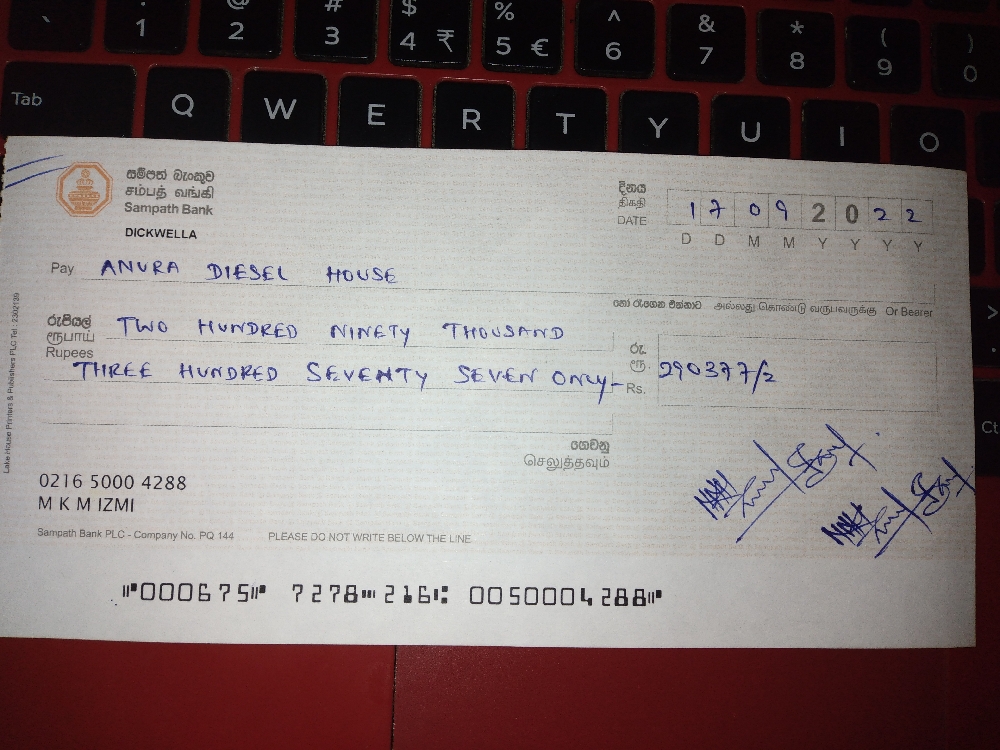 ` 1 @ 2 # 3 $ 4 ₹ % 5 € ^ 6 & 7 * 8 ( 9 ) 0
Tab Q W E R T Y U I O
සම්පත් බැංකුව
சம்பத் வங்கி
Sampath Bank
DICKWELLA
දිනය
திகதி
DATE
1 7 0 9 2 0 2 2
D D M M Y Y Y Y
Pay ANURA DIESEL HOUSE
හෝ රැගෙන එන්නාට அல்லது கொண்டு வருபவருக்கு Or Bearer
රුපියල්
ரூபாய்
Rupees
TWO HUNDRED NINETY THOUSAND
THREE HUNDRED SEVENTY SEVEN ONLY
රු.
ரூ.
Rs.
290377/2
ගෙවනු
செலுத்தவும்
0216 5000 4288
M K M IZMI
Sampath Bank PLC - Company No. PQ 144 PLEASE DO NOT WRITE BELOW THE LINE
⑈000675⑈ 7278⑉216⑆ 0050004288⑈
Lake House Printers & Publishers PLC Tel.: 2302139
Ct